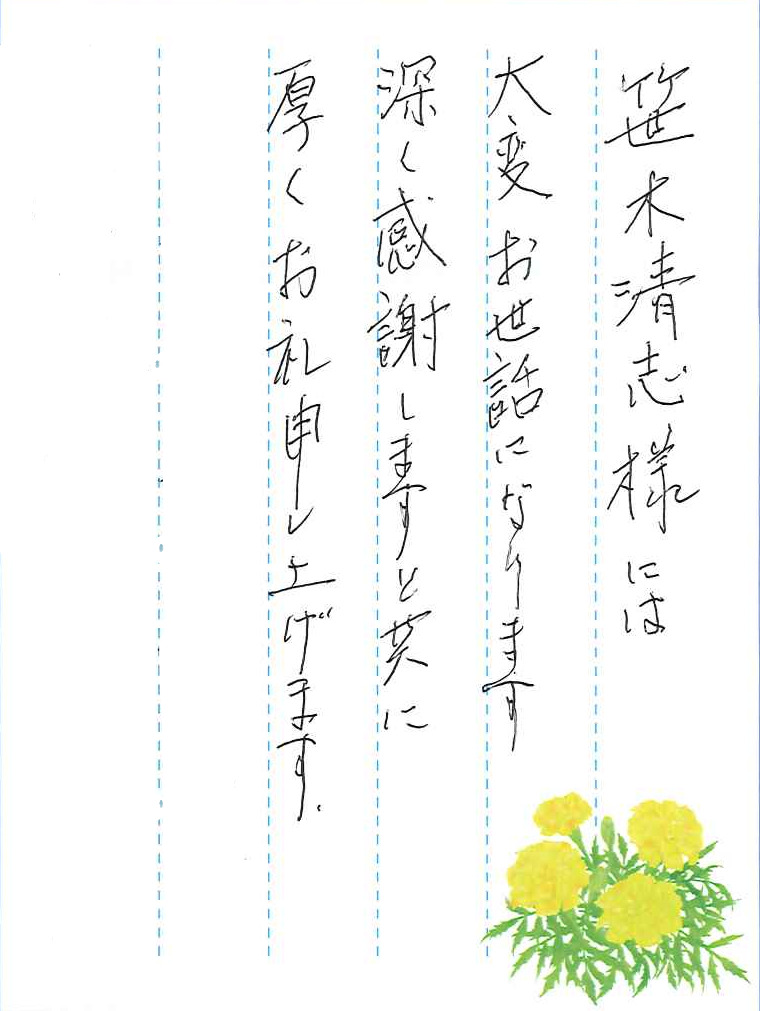 笹木清志様には
大変お世話になります
深く感謝しますと共に
厚くお礼申し上げます.